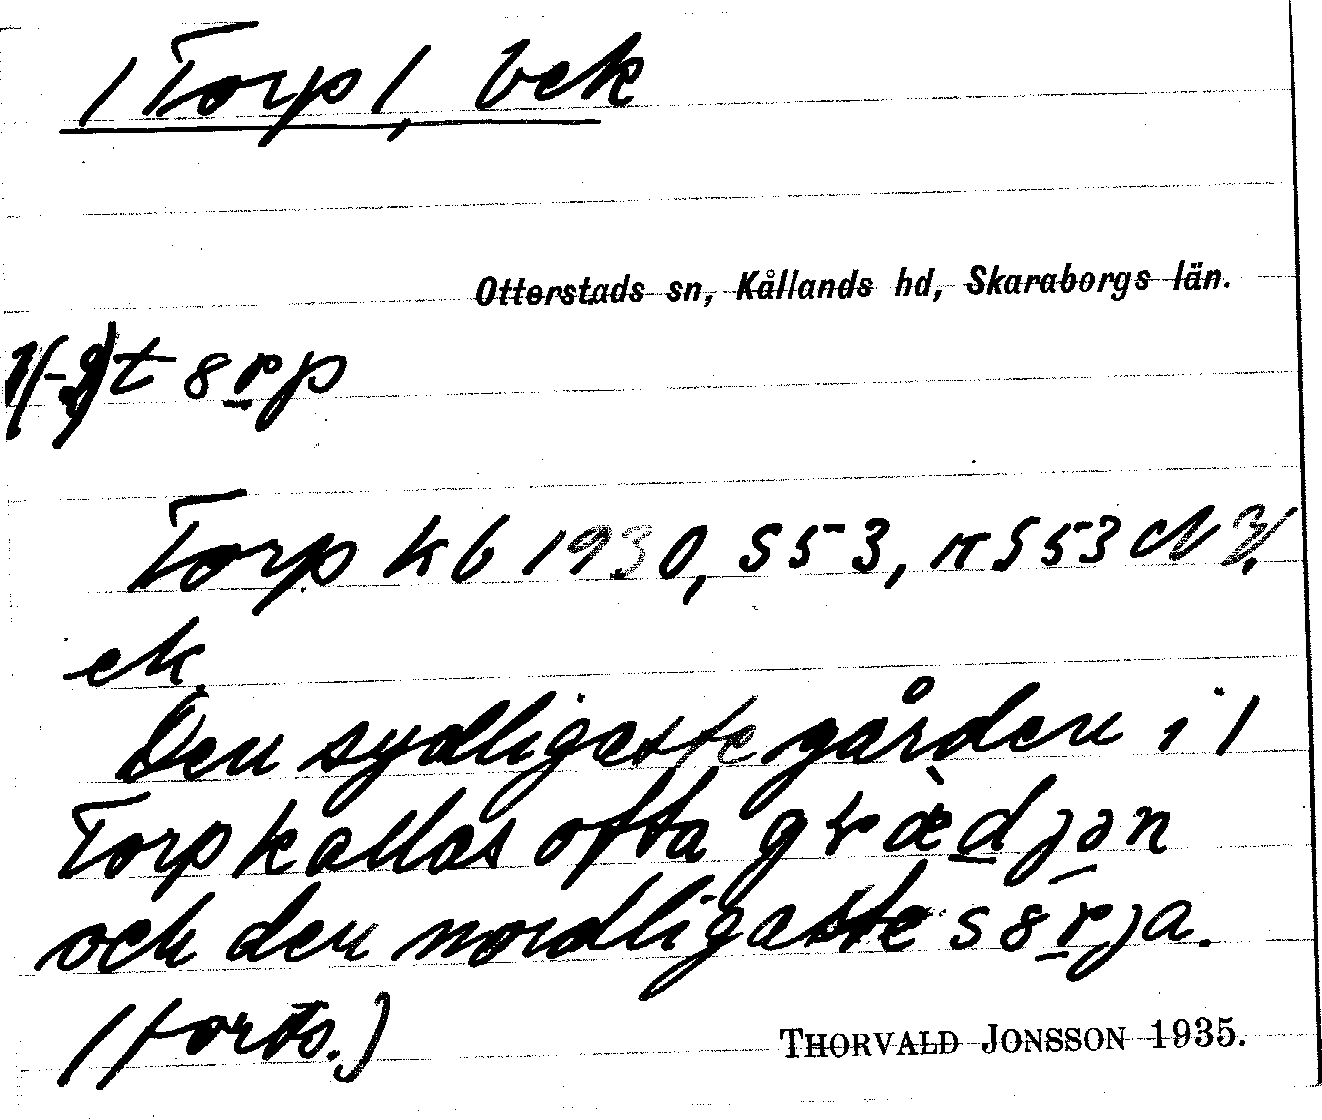 /Torp/, bek
Otterstads sn, Kållands hd, Skaraborgs län.
t 8rp
Torp kb 1930, S53, rr S53 NV,
ek.
Den sydligaste gården i /
Torp kallas ofta grædjən
och den nordligaste s8rja.
(forts.)
THORVALD JONSSON 1935.